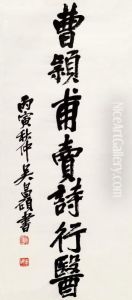 曹穎甫賣詩行醫
丙寅秋仲吳昌碩書